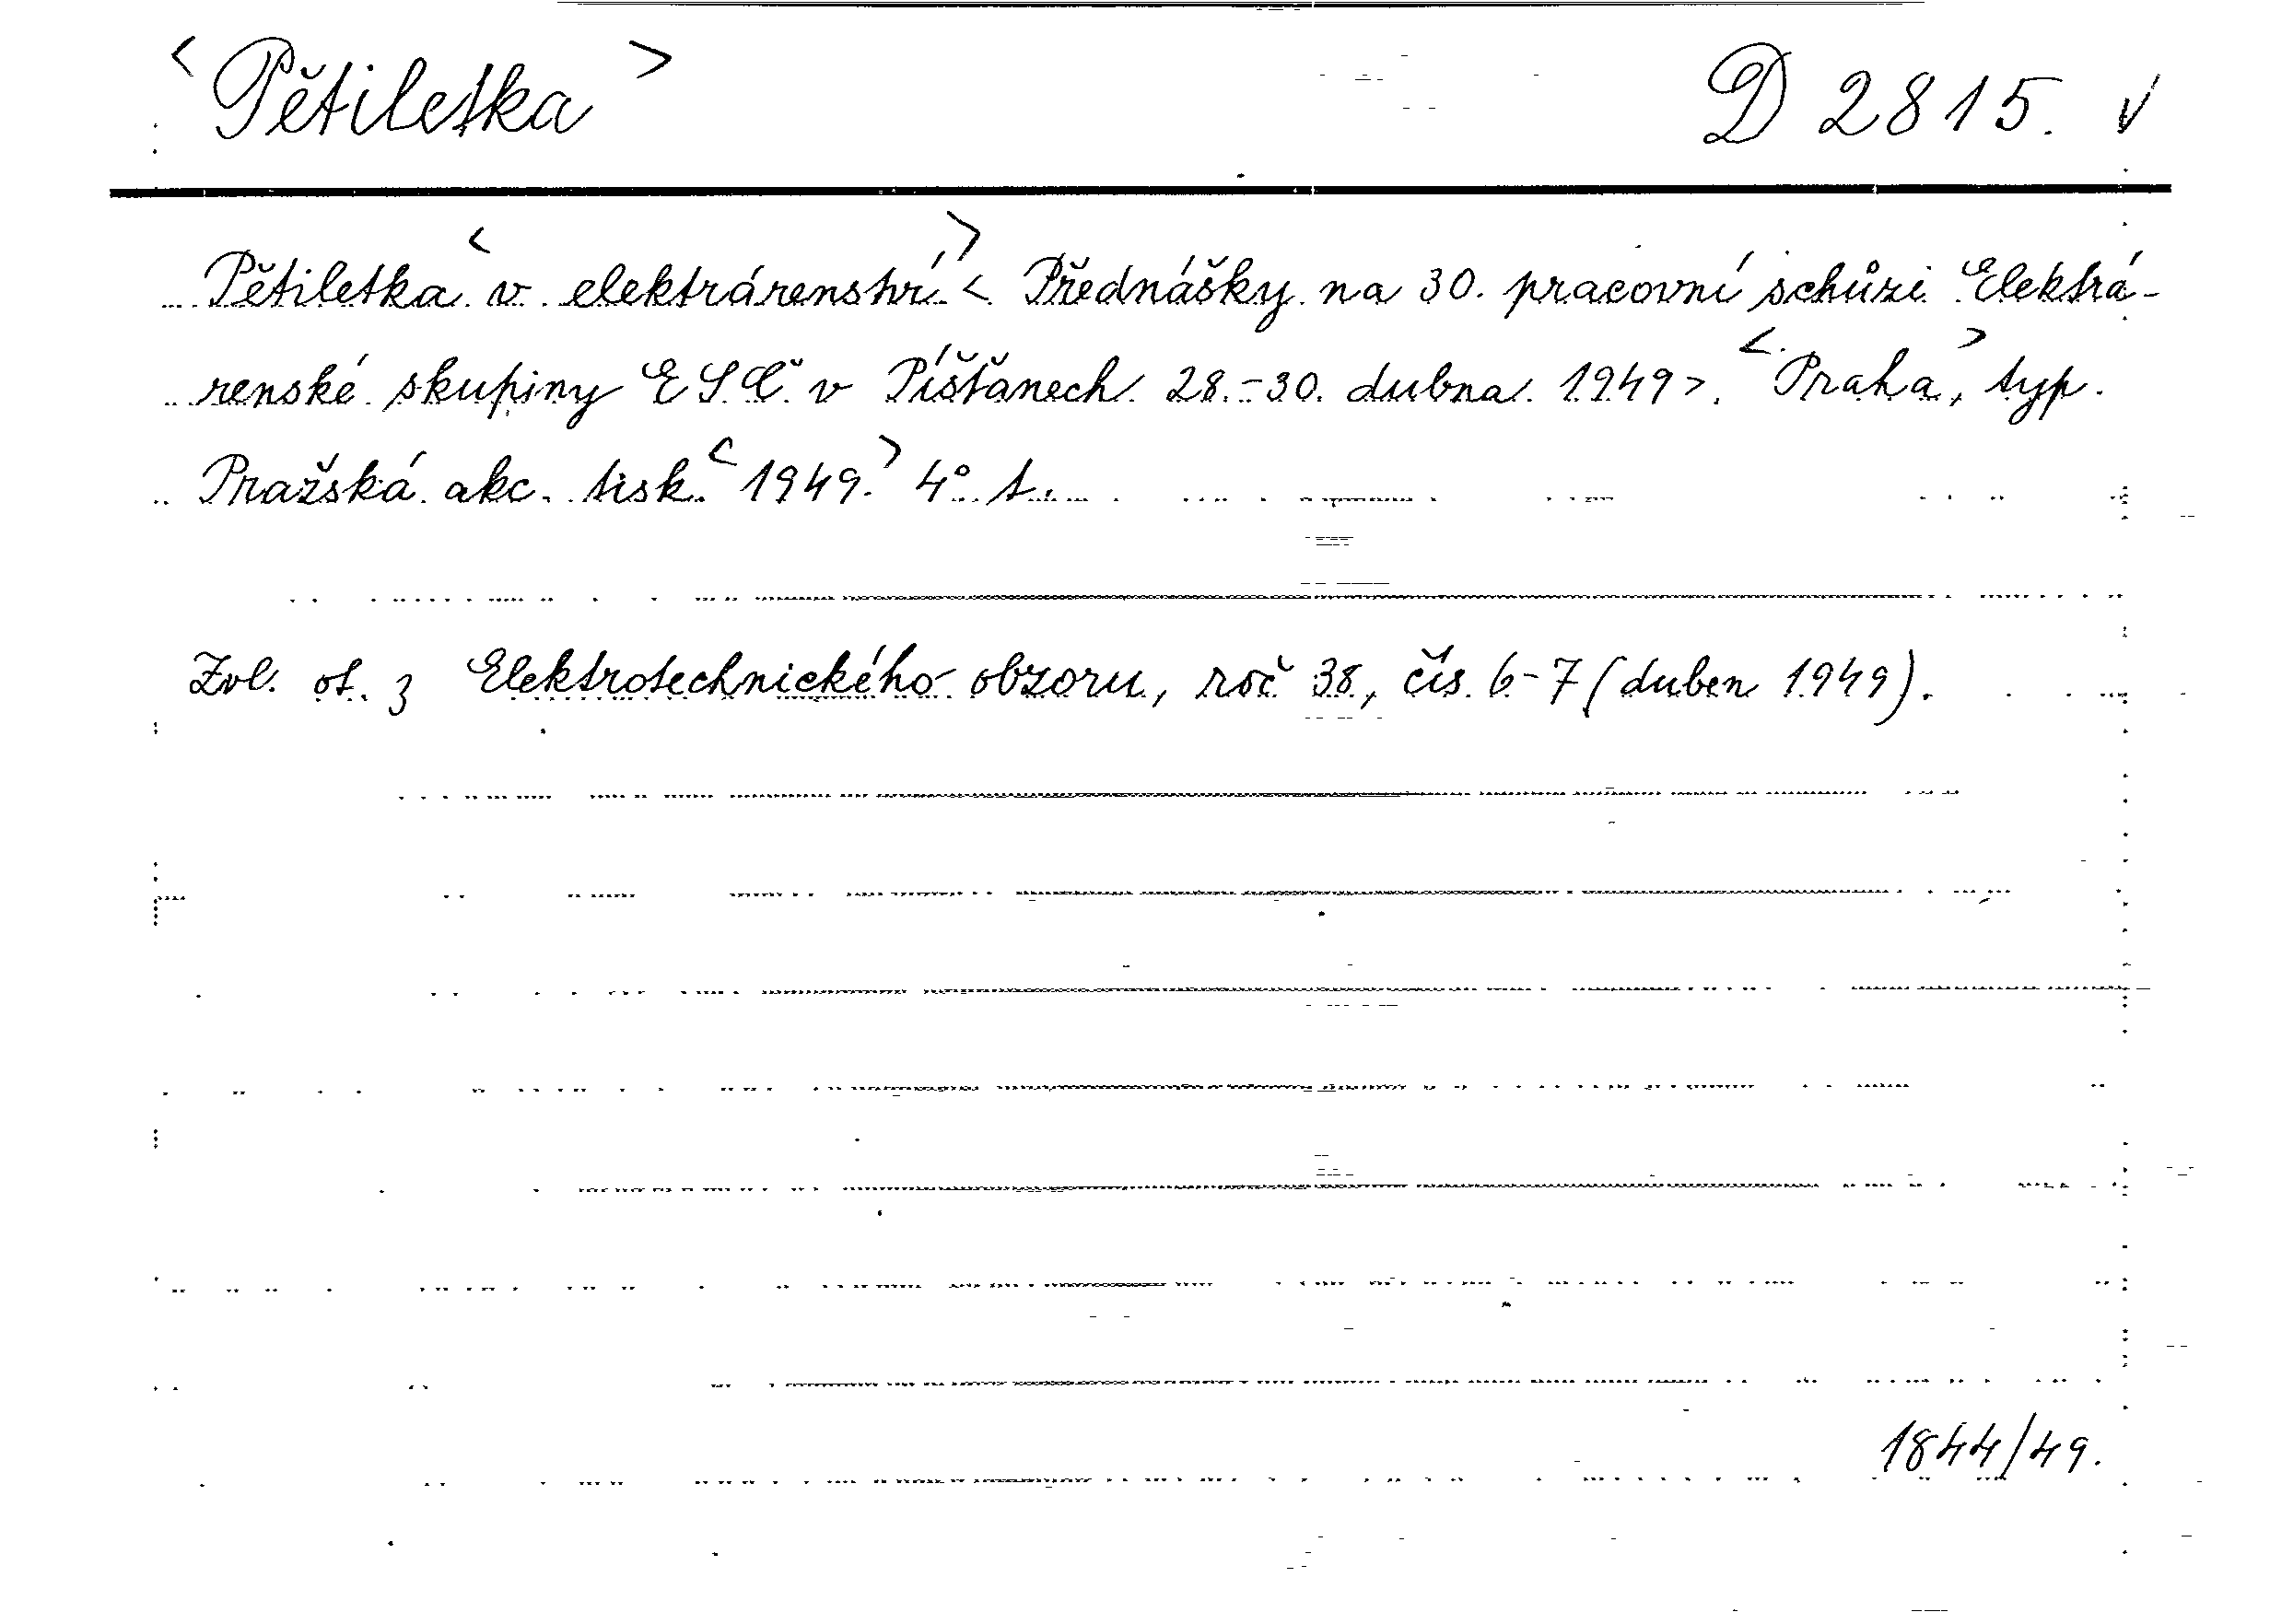 <Pětiletka> D 2815. √
Pětiletka <v elektrárenství> <Přednášky na 30. pracovní schůzi Elektrá-
renské skupiny ESČ v Píšťanech 28.-30. dubna 1949>. <Praha>, typ.
Pražská akc. tisk. <1949.> 4° t.
Zvl. ot. z Elektrotechnického obzoru, roč 38, čís. 6-7 (duben 1949).
1844/49.